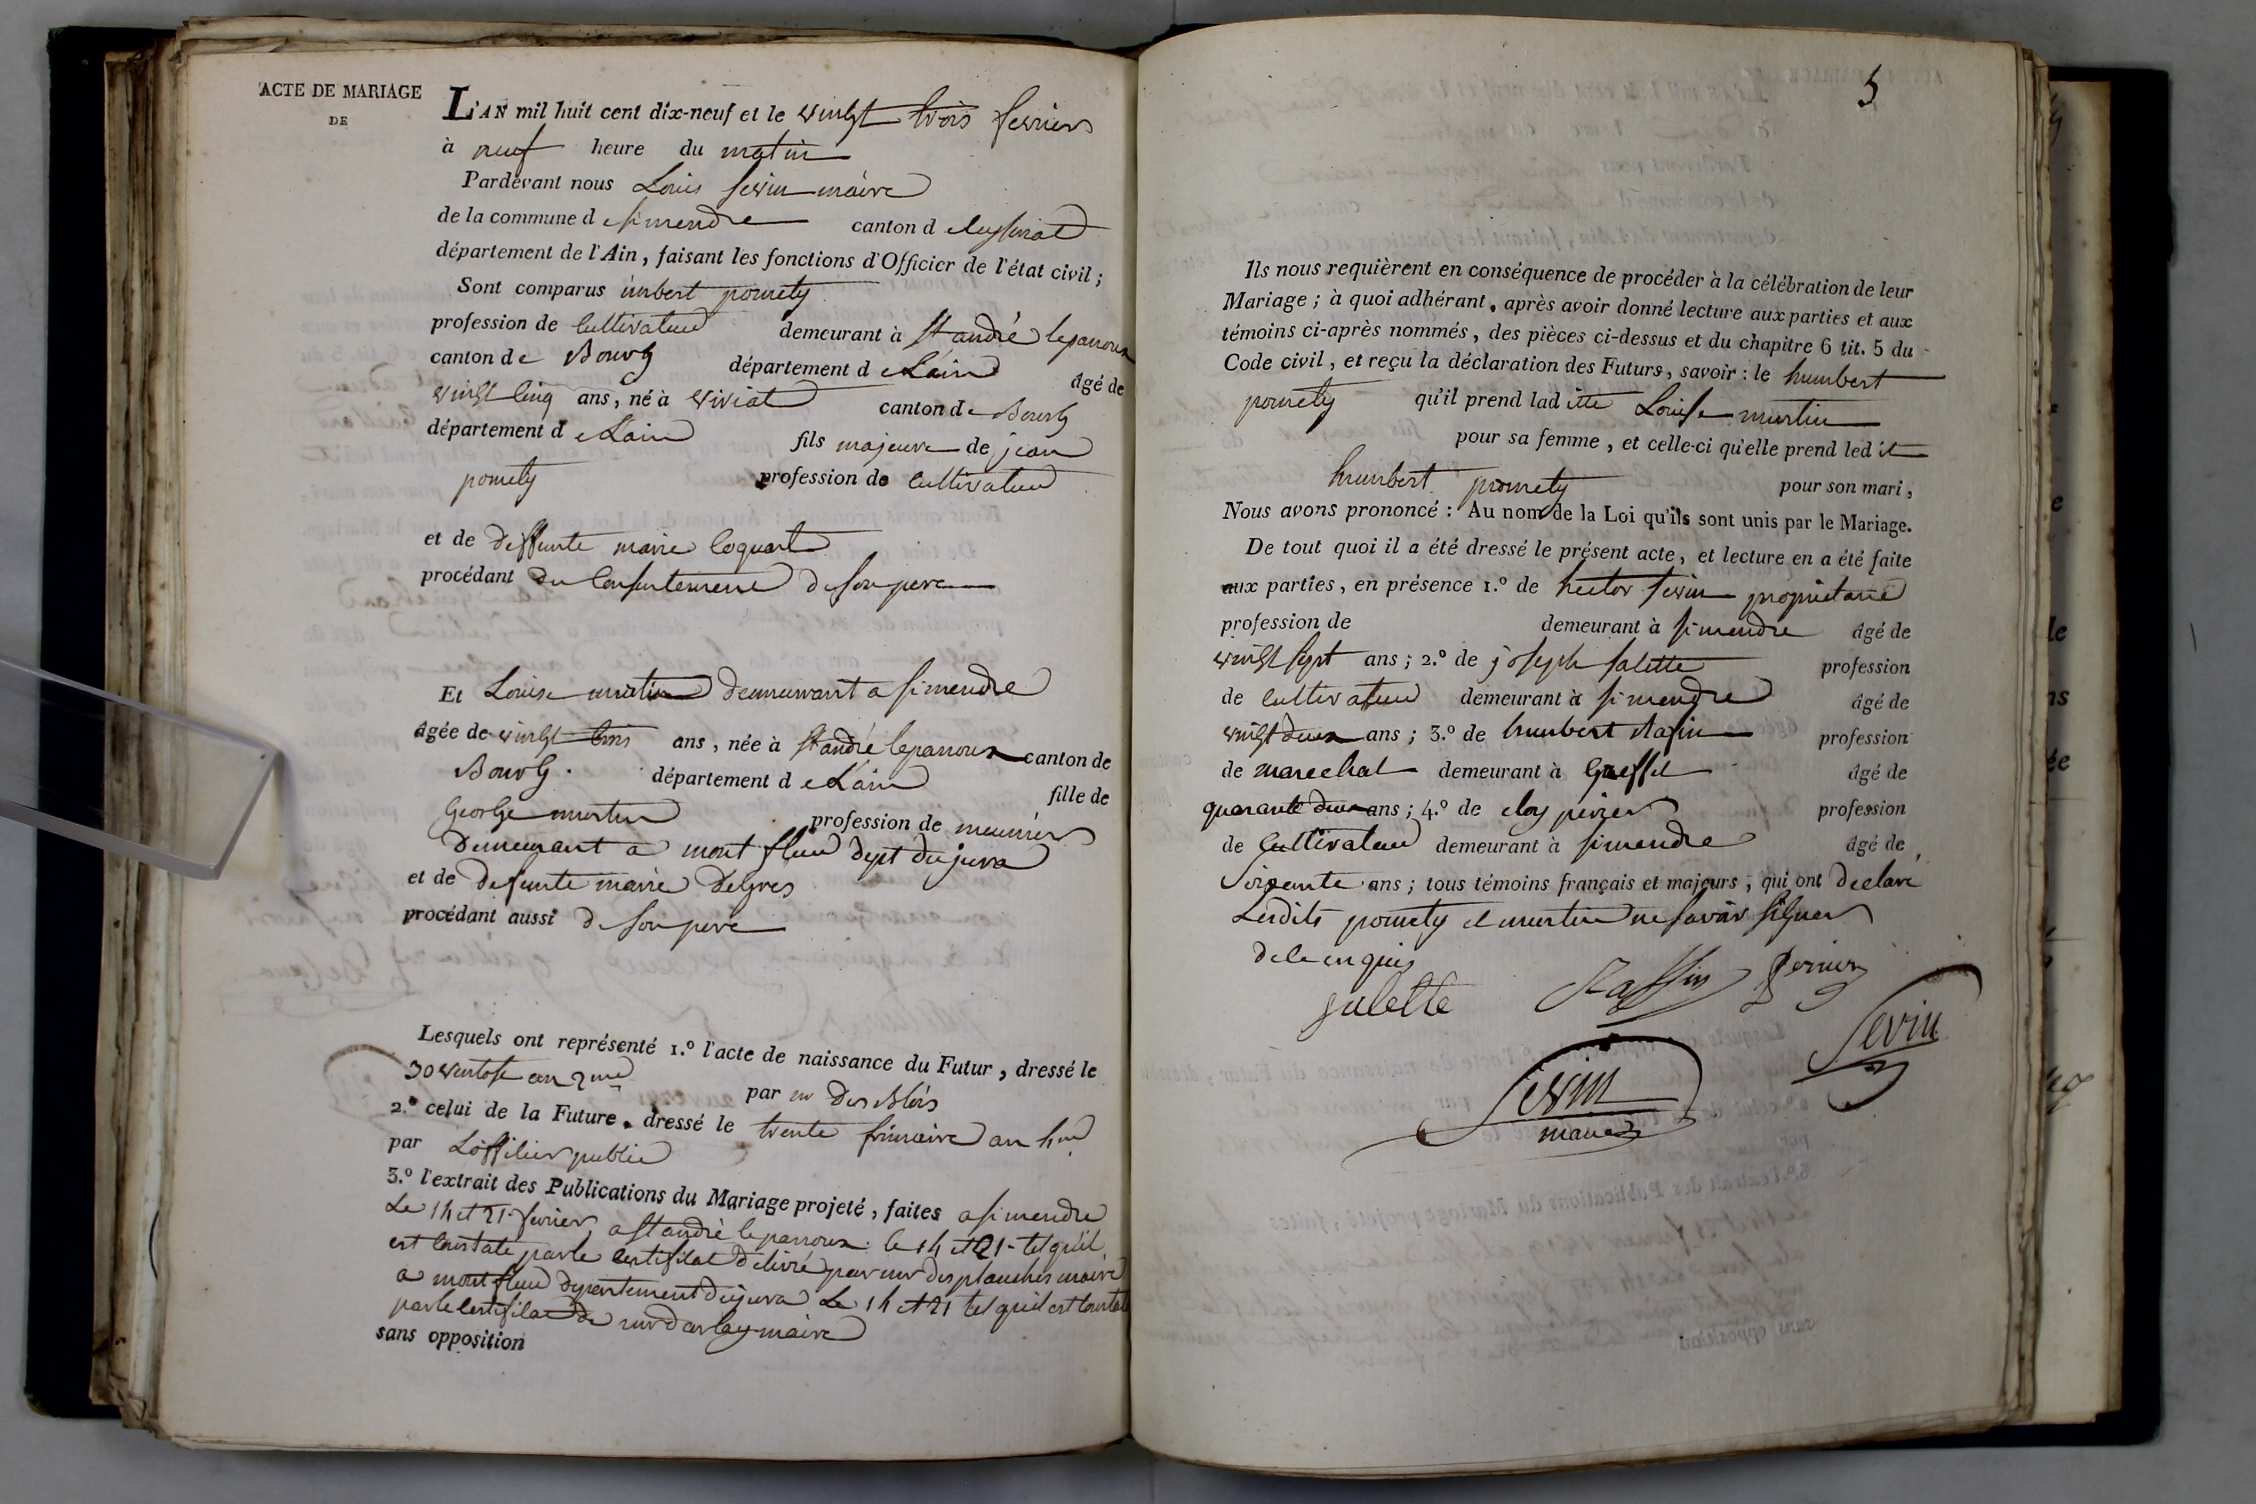 ACTE DE MARIAGE
DE
L'AN mil huit cent dix-neuf et le vingt trois fevrier
à neuf heure du matin
Pardevant nous Louis sevin maire
de la commune de simendre canton de
département de l'Ain, faisant les fonctions d'Officier de l'état civil;
Sont comparus umbert pomety
profession de cultivateur demeurant à st andré lepanoux
canton de Bourg département de Lain âgé de
vingt cinq ans, né à viriat canton de Bourg
département de Lain fils majeure de jean
pomety profession de cultivateur
et de deffunte marie coquart
procédant du consentement de son pere
Et Louise murtin demeurant a simendre
âgée de vingt trois ans, née à st andré lepanoux canton de
Bourg. département de Lain fille de
George murtin profession de meunier
Demeurant a mont fleur dept du jura
et de defunte marie
procédant aussi de son pere
Lesquels ont représenté 1.º l'acte de naissance du Futur, dressé le
30 ventose an 2me par mr
2.º celui de la Future, dressé le trente frimaire an 4me
par Lofficier public
3.º l'extrait des Publications du Mariage projeté, faites a simendre
Le 14 et 21 fevrier, a st andré lepanoux le 14 et 21 tel quil
est constaté par le certificat délivré par mr desplanches maire
a mont fleur departement du jura Le 14 et 21 tel quil est constaté
par le certificat de mr darlay maire
sans opposition
5
Ils nous requièrent en conséquence de procéder à la célébration de leur
Mariage; à quoi adhérant, après avoir donné lecture aux parties et aux
témoins ci-après nommés, des pièces ci-dessus et du chapitre 6 tit. 5 du
Code civil, et reçu la déclaration des Futurs, savoir: le humbert
pomety qu'il prend lad itte Louise murtin
pour sa femme, et celle-ci qu'elle prend led it
humbert pomety pour son mari,
Nous avons prononcé: Au nom de la Loi qu'ils sont unis par le Mariage.
De tout quoi il a été dressé le présent acte, et lecture en a été faite
aux parties, en présence 1.º de hector sevin propriétaire
profession de demeurant à simendre âgé de
vingt sept ans; 2.º de joseph salette profession
de cultivateur demeurant à simendre âgé de
vingt deux ans; 3.º de humbert Rafin profession
de marechal demeurant à âgé de
quarante deux ans; 4.º de eloy perier profession
de Cultivateur demeurant à simendre âgé de
soixante ans; tous témoins français et majeurs, qui ont déclaré
Lesdits pomety et murtin ne savoir signer
de ce enquis
salette Raffin Perrier
Sevin
Sevin
maire